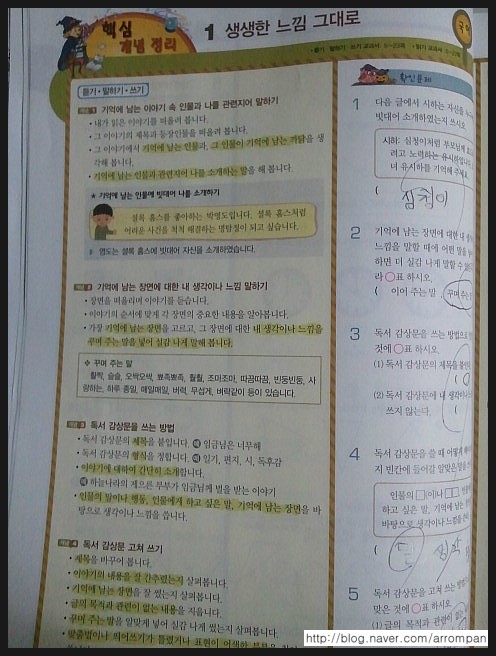 핵심
개념 정리
1 생생한 느낌 그대로
국어
듣기 • 말하기 • 쓰기
개념 1 기억에 남는 이야기 속 인물과 나를 관련지어 말하기
• 내가 읽은 이야기를 떠올려 봅니다.
• 그 이야기의 제목과 등장인물을 떠올려 봅니다.
• 그 이야기에서 기억에 남는 인물과, 그 인물이 기억에 남는 까닭을 생
각해 봅니다.
• 기억에 남는 인물과 관련지어 나를 소개하는 말을 해 봅니다.
★ 기억에 남는 인물에 빗대어 나를 소개하기
셜록 홈스를 좋아하는 박영도입니다. 셜록 홈스처럼
어려운 사건을 척척 해결하는 명탐정이 되고 싶습니다.
영도는 셜록 홈스에 빗대어 자신을 소개하였습니다.
개념 2 기억에 남는 장면에 대한 내 생각이나 느낌 말하기
• 장면을 떠올리며 이야기를 듣습니다.
• 이야기의 순서에 맞게 각 장면의 중요한 내용을 알아봅니다.
• 가장 기억에 남는 장면을 고르고, 그 장면에 대한 내 생각이나 느낌을
꾸며 주는 말을 넣어 실감 나게 말해 봅니다.
❖ 꾸며 주는 말
활짝, 슬슬, 오싹오싹, 뾰족뾰족, 훨훨, 조마조마, 따끔따끔, 빈둥빈둥, 사
랑하는, 하루 종일, 매일매일, 버럭, 무섭게, 벼락같이 등이 있습니다.
개념 3 독서 감상문을 쓰는 방법
• 독서 감상문의 제목을 붙입니다. 예 임금님은 너무해
• 독서 감상문의 형식을 정합니다. 예 일기, 편지, 시, 독후감
• 이야기에 대하여 간단히 소개합니다.
예 하늘나라의 게으른 부부가 임금님께 벌을 받는 이야기
• 인물의 말이나 행동, 인물에게 하고 싶은 말, 기억에 남는 장면을 바
탕으로 생각이나 느낌을 씁니다.
개념 4 독서 감상문 고쳐 쓰기
• 제목을 바꾸어 봅니다.
• 이야기의 내용을 잘 간추렸는지 살펴봅니다.
• 기억에 남는 장면을 잘 썼는지 살펴봅니다.
• 글의 목적과 관련이 없는 내용을 지웁니다.
• 꾸며 주는 말을 알맞게 넣어 실감 나게 썼는지 살펴봅니다.
• 맞춤법이나 띄어쓰기가 틀렸거나 표현이 어색한 부분을
확인 문제
1 다음 글에서 시하는 자신을
빗대어 소개하였는지 쓰시오.
시하: 심청이처럼 부모님께
려고 노력하는 유시하입니다
너 유시하를 기억해 주세요.
( 심청이
2 기억에 남는 장면에 대한 내
느낌을 말할 때에 어떤 말을
하면 더 실감 나게 말할 수
라 ○표 하시오.
( 이어 주는 말 , 꾸며 주는
3 독서 감상문을 쓰는 방법으로
것에 ○표 하시오.
(1) 독서 감상문의 제목을
( ○
(2) 독서 감상문에 내 생각이나
쓰지 않는다. (
4 독서 감상문을 쓸 때 어떻게
지 빈칸에 들어갈 알맞은 말을
인물의 □이나 □□, 인물에
하고 싶은 말, 기억에 남는
바탕으로 생각이나 느낌을
(
5 독서 감상문을 고쳐 쓰는 방법
맞은 것에 ○표 하시오.
(1) 글의 목적과 관련이
http://blog.naver.com/arrompan